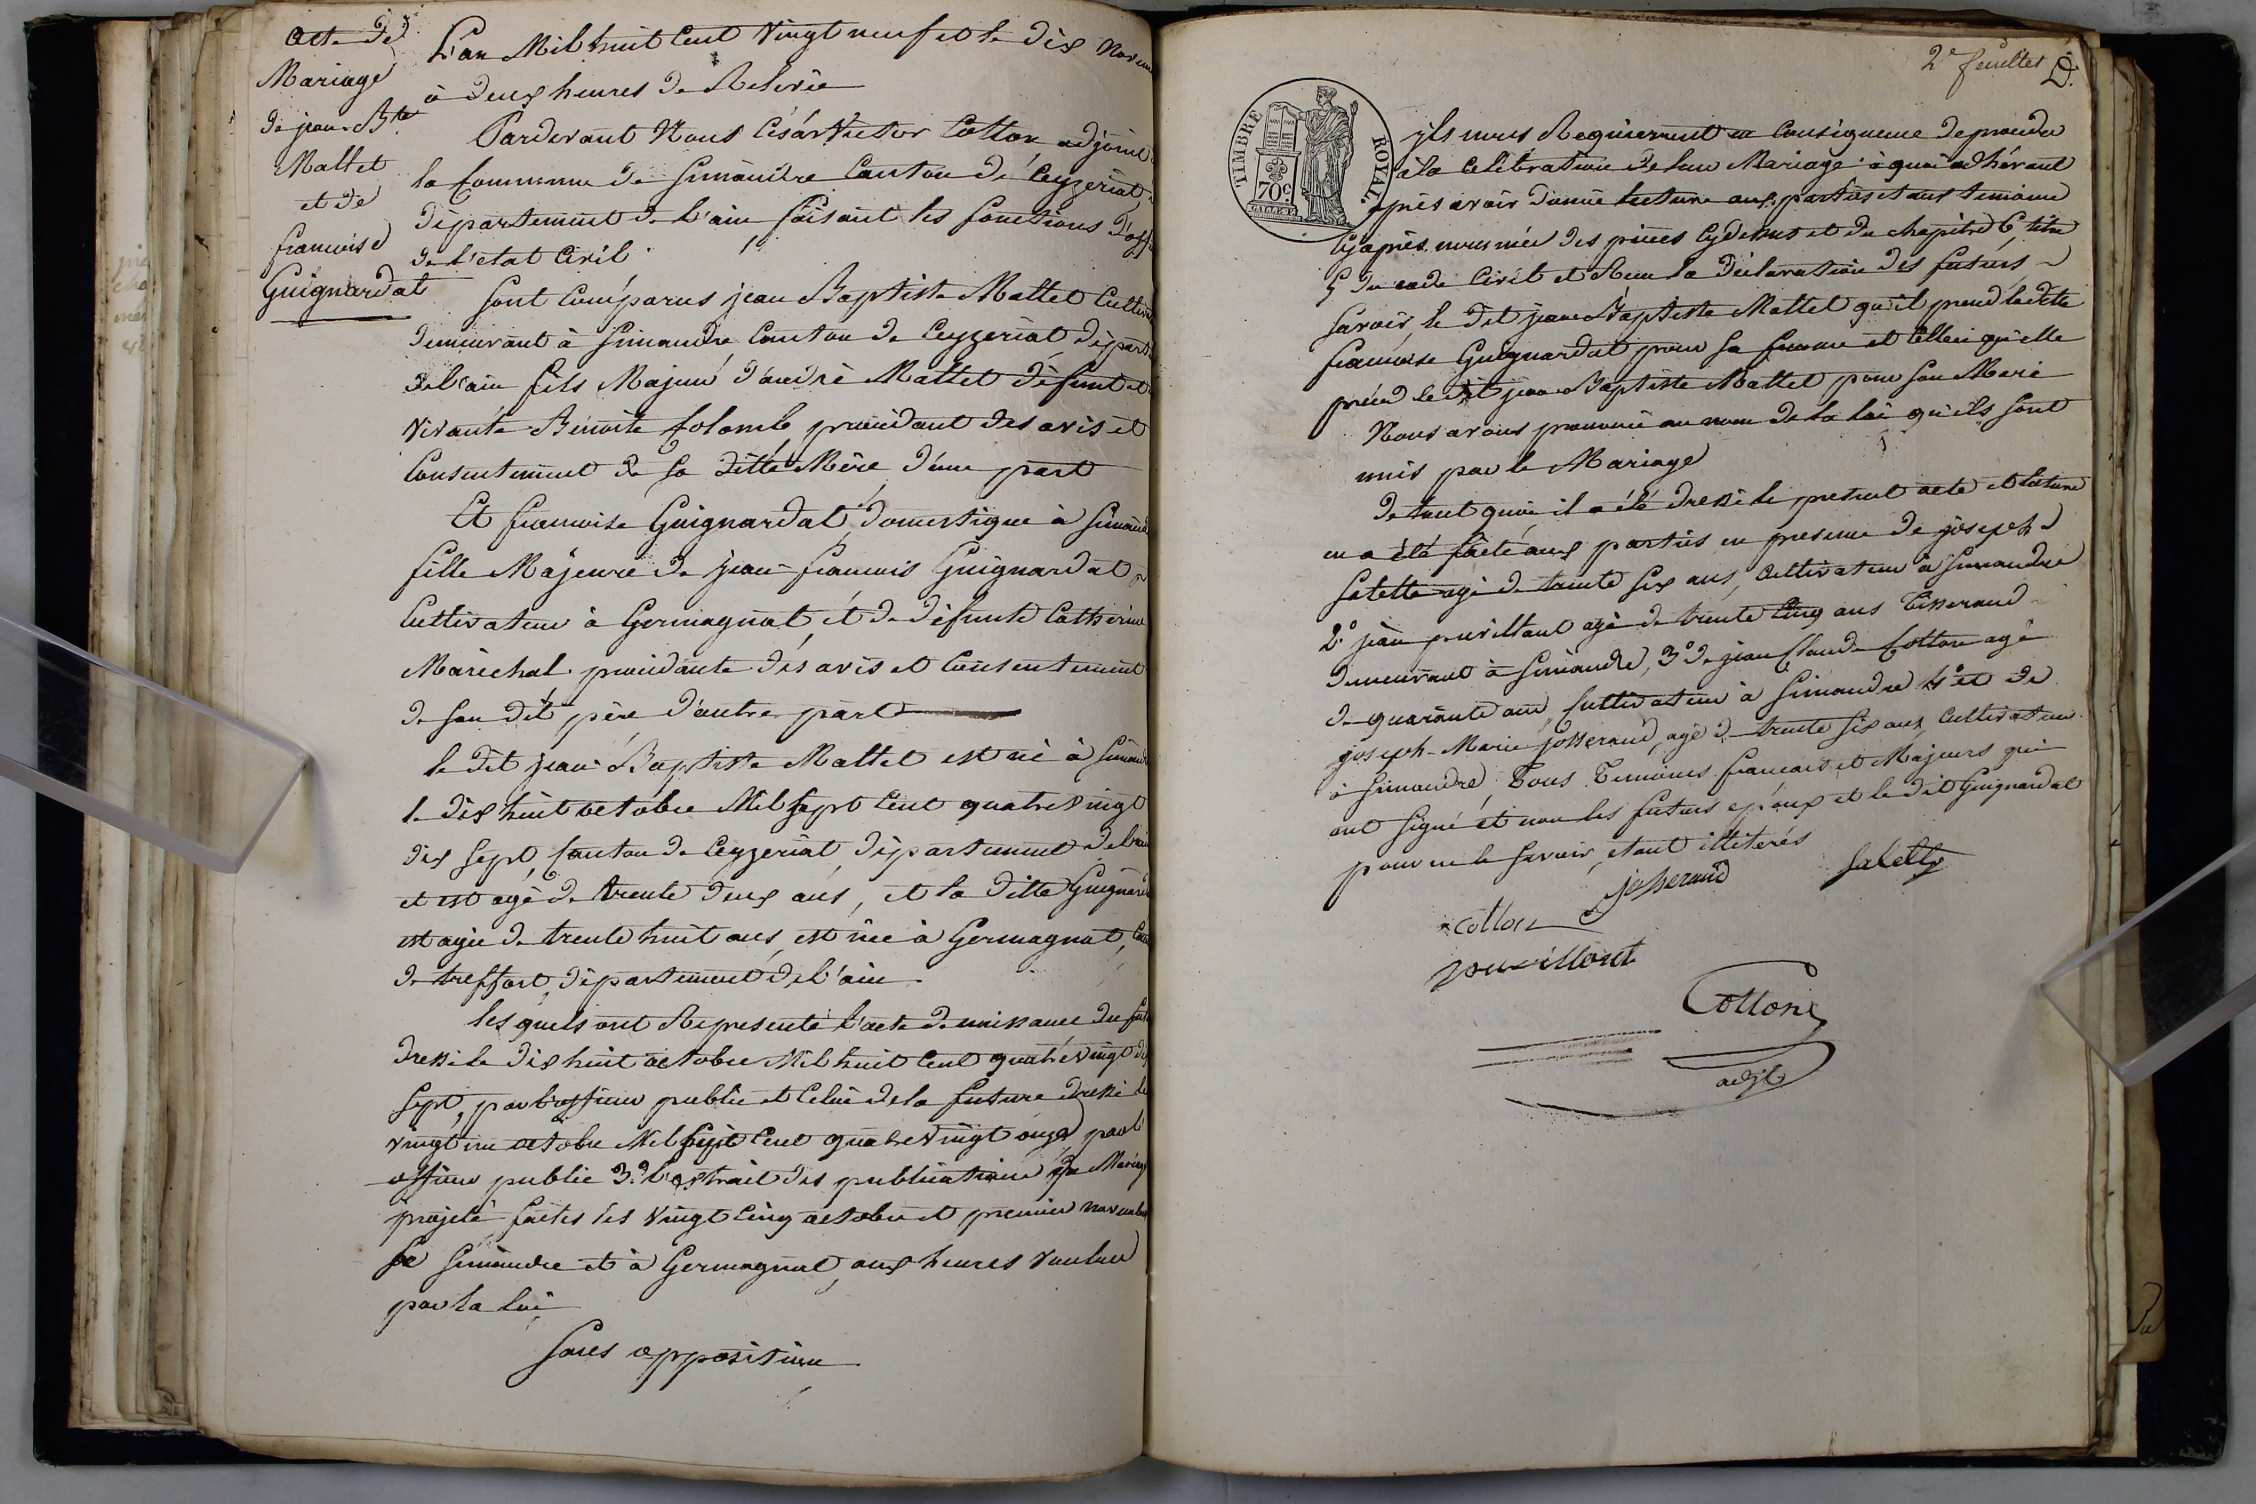 Acte de
Mariage
de jean Bte
Mattet
et de
francoise
Guignardat
L'an Mil huit Cent Vingt neuf et le dix Novem
à deux heures de Relevée
Pardevant Nous César Victor Cotton adjoint
la Commune de Simandre Canton de Ceyzeriat
département de l'ain faisant les fonctions d'off
de l'etat Civil
Sont Comparus jean Baptiste Mattet Cultiv
demeurant à Simandre Canton de Ceyzeriat départ
de l'ain fils Majeur d'andré Mattet défunt et
vivante Benoite Colomb procédant des avis et
Consentement de sa ditte Mère d'une part
Et francoise Guignardat domestique à Simand
fille Majeure de jean-francois Guignardat
Cultivateur à Germagnat, et de défunte Catherine
Maréchal procédante des avis et Consentement
de son dit père d'autre part
le dit jean Baptiste Mattet est né à Simand
le dix huit octobre Mil Sept Cent quatre vingt
dix sept, Canton de Ceyzeriat, département de l'ain
et est agé de trente deux ans, et la ditte Guignard
est agée de trente huit ans, est née à Germagnat,
de treffort, département de l'ain
les quels ont Representé l'acte de naissance du fut
dressé le dix huit octobre Mil huit Cent quatre vingt dix
sept, par l'officier public et Celui de la future dressé le
vingt un octobre Mil Sept Cent quatre vingt onze par l'
officier public 3.° l'extrait des publications du Mariag
projeté faites les vingt Cinq octobre et premier novembre
Simandre et à Germagnat, aux heures voulues
par la loi
Sans opposition
2e feuillet
TIMBRE ROYAL
70c
ils nous Requierrent en Consequence de proceder
à la Celebration de leur Mariage à quoi adhérant
après avoir donné lecture aux parties et aux temoins
Cy après nommés des pièces Cy dessus et du chapitre 6 titre
5 du code Civil et Recu la déclaration des futurs
Savoir le dit jean Baptiste Mattet qu'il prend la dite
francoise Guignardat pour sa femme et Celleci qu'elle
prend le dit jean Baptiste Mattet pour son Marie
Nous avons prononcé au nom de la loi qu'ils sont
unis par le Mariage
de tout quoi il a été dressé le present acte et lecture
en a été faite aux parties en presence de joseph
Salette agé de trente six ans, Cultivateur à Simandre
2.° jean pouvillant agé de trente Cinq ans Tisserand
demeurant à Simandre, 3° de jean Claude Cotton agé
de quarante ans Cultivateur à Simandre 4° et de
joseph-Marie josserand, agé de trente six ans Cultivateur
à Simandre, Tous Temoins francais et Majeurs qui
ont Signé et non les futurs epoux et le dit Guignardat
pour ne le savoir, etant illiterés
josserand Salette
Cotton
pouvillant
Cotton
adjt